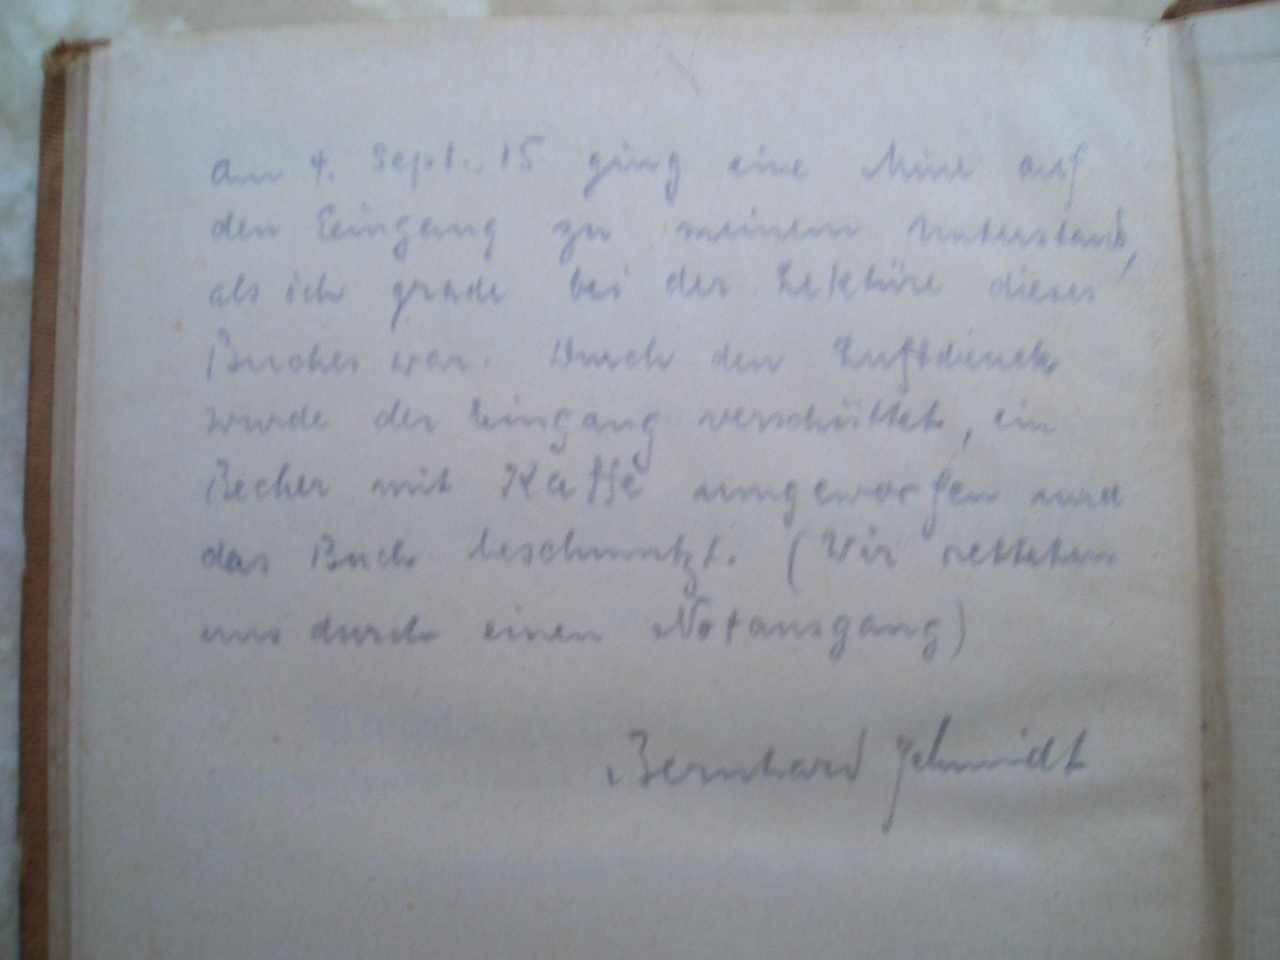 Am 4. Sept. 15 ging eine Mine auf
den Eingang zu meinem Unterstand,
als ich grade bei der Lektüre dieses
Buches war. Durch den Luftdruck
wurde der Eingang verschüttet, ein
Becher mit Kaffe umgeworfen und
das Buch beschmutzt. (Wir retteten
uns durch einen Notausgang)
Bernhard Schmidt